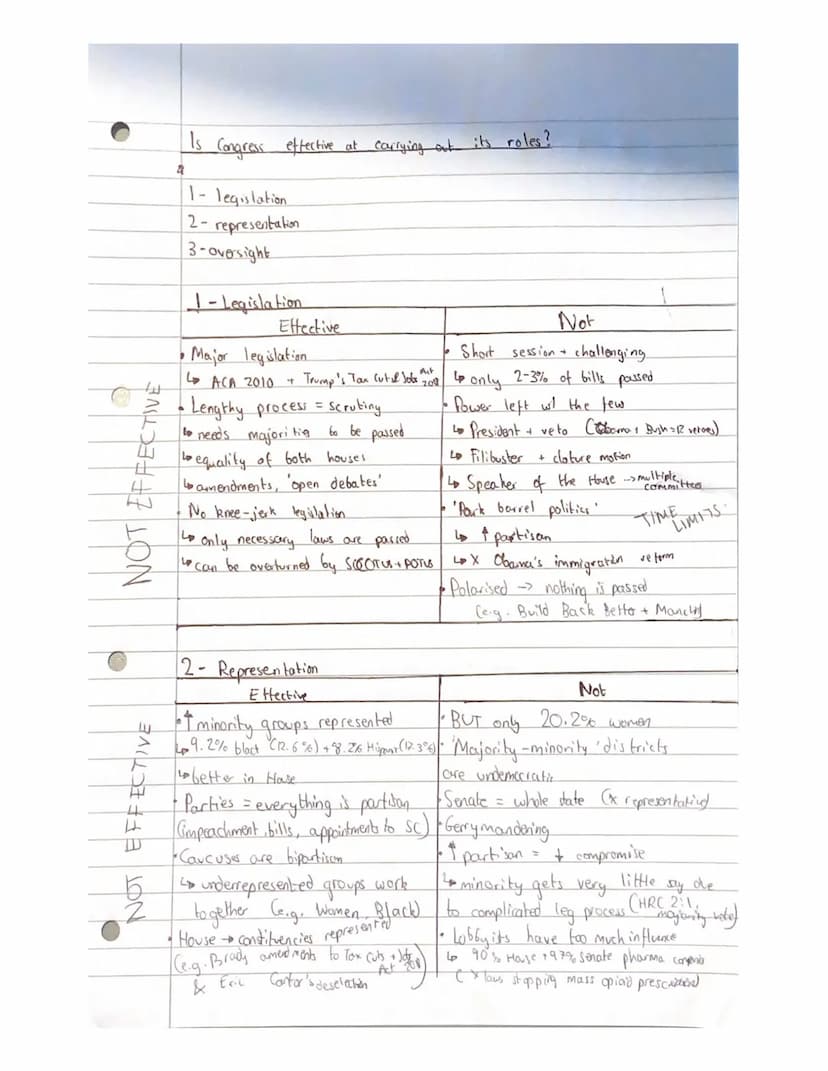 Is Congress effective at carrying out its roles?
1 - legislation
2 - representation
3 - oversight
1 - Legislation
Effective
Not
• Major legislation
↳ ACA 2010 + Trump's Tax Cut & Jobs Act
• Lengthy process = scrutiny
↳ needs majorities to be passed
↳ equality of both houses
↳ amendments, 'open debates'
• No knee-jerk legislation
↳ only necessary laws are passed
↳ can be overturned by SCOTUS + POTUS
• Short session + challenging
↳ only 2-3% of bills passed
• Power left w/ the few
↳ President + veto (Obama + Bush = 12 vetoes)
↳ Filibuster + cloture motion
↳ Speaker of the House → multiple committees
• 'Pork barrel politics'
TIME LIMITS
↳ ↑ partisan
↳ X Obama's immigration reform
• Polarised → nothing is passed
(e.g. Build Back Better + Manchin)
NOT EFFECTIVE
2 - Representation
Effective
Not
• ↑ minority groups represented
↳ 9.2% black (12.6%) + 8.2% Hispanic (17.3%)
↳ better in House
• Parties = everything is partisan
(impeachment, bills, appointments to SC)
• Caucuses are bipartisan
↳ underrepresented groups work
together (e.g. Women, Black)
• House → constituencies represented
(e.g. Brady amendments to Tax Cuts + Jobs Act
& Eric Cantor's deselection
• BUT only 20.2% women
• 'Majority-minority' districts
are undemocratic
• Senate = whole state (X representative)
• Gerrymandering
• ↑ partisan = ↓ compromise
↳ minority gets very little say due
to complicated leg process (HRC 2:1, majority vote)
• Lobbyits have too much influence
↳ 90% House + 97% Senate pharma
(X laws stopping mass opioid
NOT EFFECTIVE